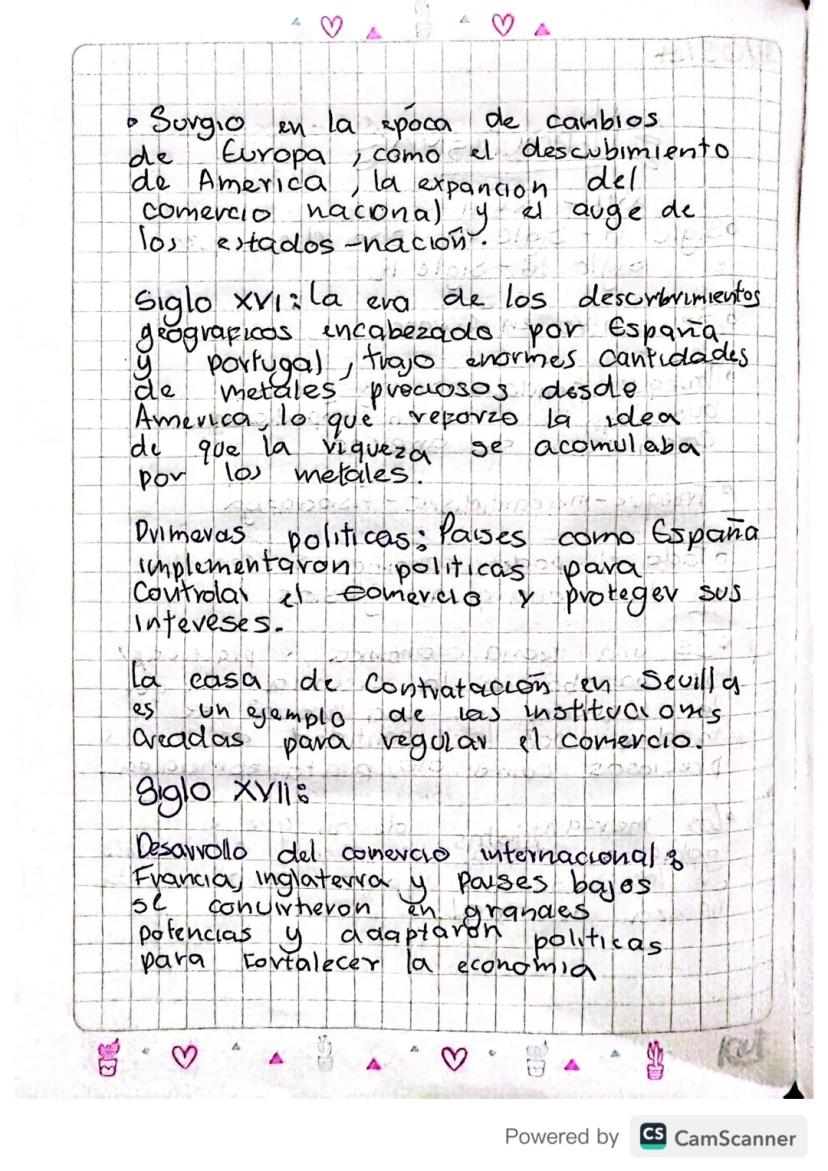 • Surgio en la epóca de cambios
de Europa, como el descubimiento
de America, la expancion del
comercio nacional y el auge de
los estados-nación.
Siglo XVI: la era de los descrubrimientos
geograficos encabezado por España
y portugal, trajo enormes cantidades
de metales preciosos desde
America, lo que reforzo la idea
de que la riqueza se acomulaba
por los metales.
Primeras politicas: Paises como España
implementaron politicas para
Controlar el comercio y proteger sus
intereses.
La casa de Contratación en Sevilla
es un ejemplo de las instituciones
Creadas para regular el comercio.
Siglo XVII:
Desarrollo del comercio internacional:
Francia, inglaterra y paises bajos
se convirtieron en grandes
potencias y adaptarón politicas
para fortalecer la economia
Powered by CS CamScanner